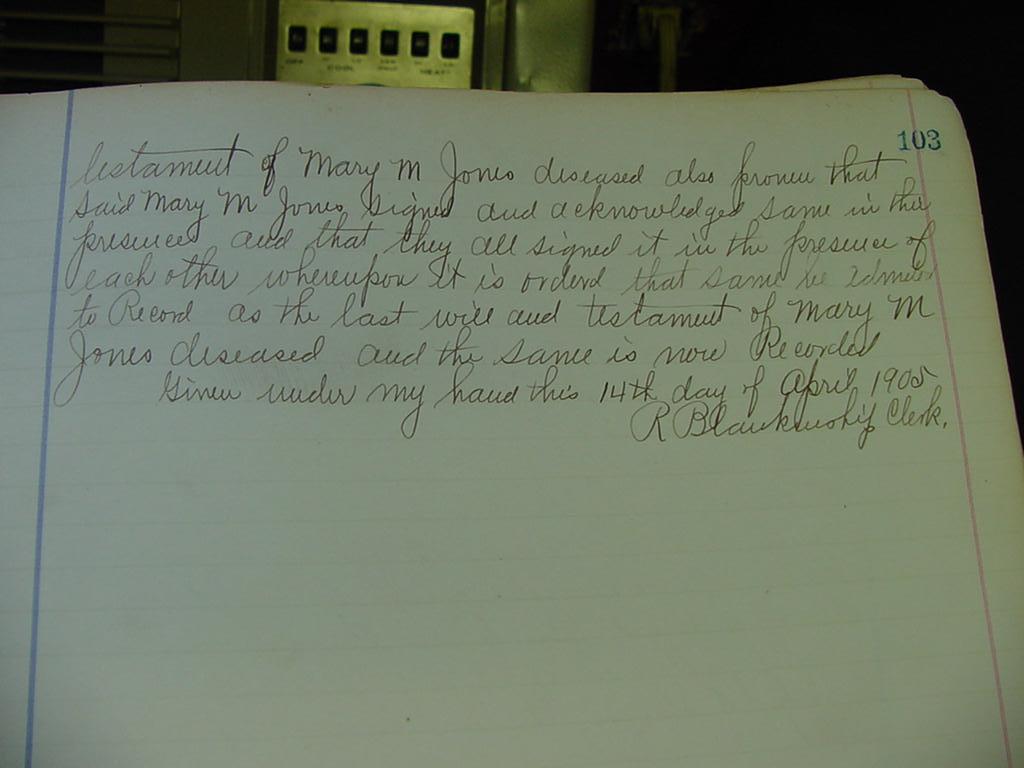 OFF LO COOL HEAT
103
testament of Mary M Jones diseased also proven that
said Mary M Jones signed and acknowledged same in their
presences and that they all signed it in the presence of
each other whereupon it is orderd that same be
to Record as the last will and testament of Mary M
Jones diseased and the same is now Recorded
Given under my hand this 14th day of April 1905
R Blankenship Clerk.